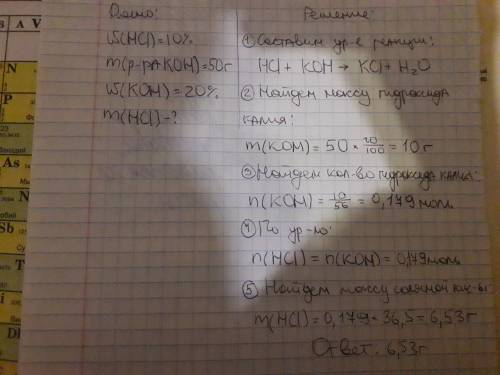 Дано:
W(HCl)=10%
m(р-ра KOH)=50г
W(KOH)=20%
m(HCl)-?
Решение:
① Составим ур-е реакции:
HCl + KOH → KCl + H₂O
② Найдем массу гидроксида
калия:
m(KOH) = 50 * 20/100 = 10 г
③ Найдем кол-во гидроксида калия:
n(KOH) = 10/56 = 0,179 моль
④ По ур-ю:
n(HCl) = n(KOH) = 0,179 моль
⑤ Найдем массу соляной кис-ы:
m(HCl) = 0,179 * 36,5 = 6,53 г
Ответ: 6,53 г
S A V
N
P
As
Sb
Bi